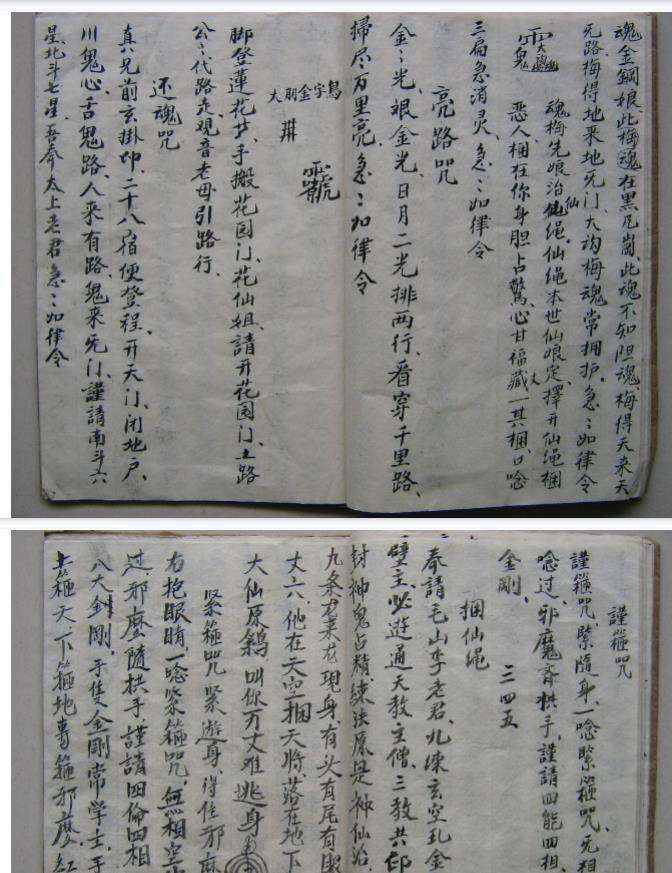 魂金鋼娘、此梅魂在黑尼崗、此魂不知阻魂、梅得天来天
死路梅得地来地死门、大洶梅魂常拥护、急:如律令
魂梅先娘治仙绳、仙绳本世仙娘定、擇开仙绳梱
恶人、梱在你身胆占驚、心甘福藏一其梱、口唸
三扁急消灵、急:如律令
亮路咒
金:光、银金光、日月二光排两行、看穿千里路、
掃尽万里亮、急:如律令
脚登蓮花芽、手搬花园门、花仙姐、請开花园门、土路
公:代路走、观音老母引路行、
还魂咒
真兄前玄掛印、二十八宿便登程、开天门、闭地户、
川鬼心、舌鬼路、人来有路、鬼来死门、謹請南斗六
星、北斗七星、吾奉太上老君急:如律令
謹箍咒
謹箍咒、緊隨身、一唸緊箍咒、死相
唸过、邪魔齊拱手、謹請四能四相、
金剛、 三四五
梱仙绳
奉請毛山李老君、九凍玄空孔金
壁主、必逰通天教主僧、三教共印
封神鬼占精練法原是神仙治
九条君来龙现身、有头有尾有
丈六、他在天空梱天將、落在地下
大仙原鷄、叫你万丈难逃身
紧箍咒、紧遊身、得住邪麻
右抱眼睛、一唸紧箍咒、無相空
过邪麽隨拱手、謹請四倫四相
八大剑剛、手隻金剛常学士、手
上箍天、下箍地、專箍邪麽、紅